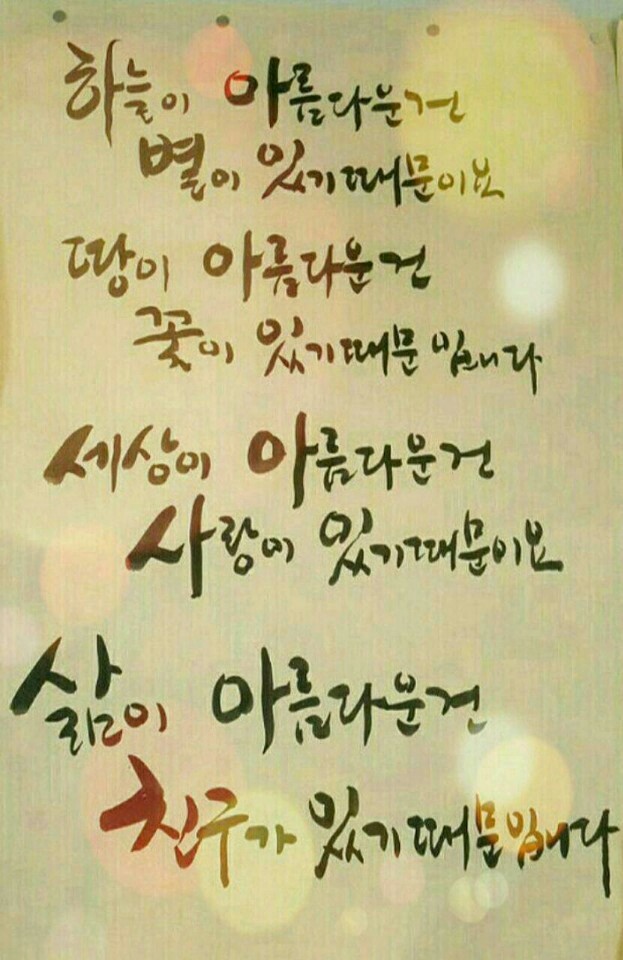 하늘이 아름다운건
별이 있기때문이요
땅이 아름다운건
꽃이 있기때문입니다
세상이 아름다운건
사랑이 있기때문이요
삶이 아름다운건
친구가 있기때문입니다